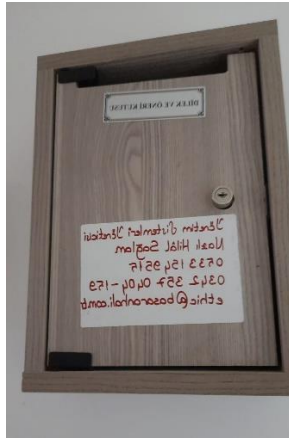 DİLEK VE ÖNERİ KUTUSU
Yönetim Sistemleri Yöneticisi
Nazlı Hilâl Sağlam
0533 154 95 15
0342 357 0404 - 159
ethic@basaranhali.com.tr